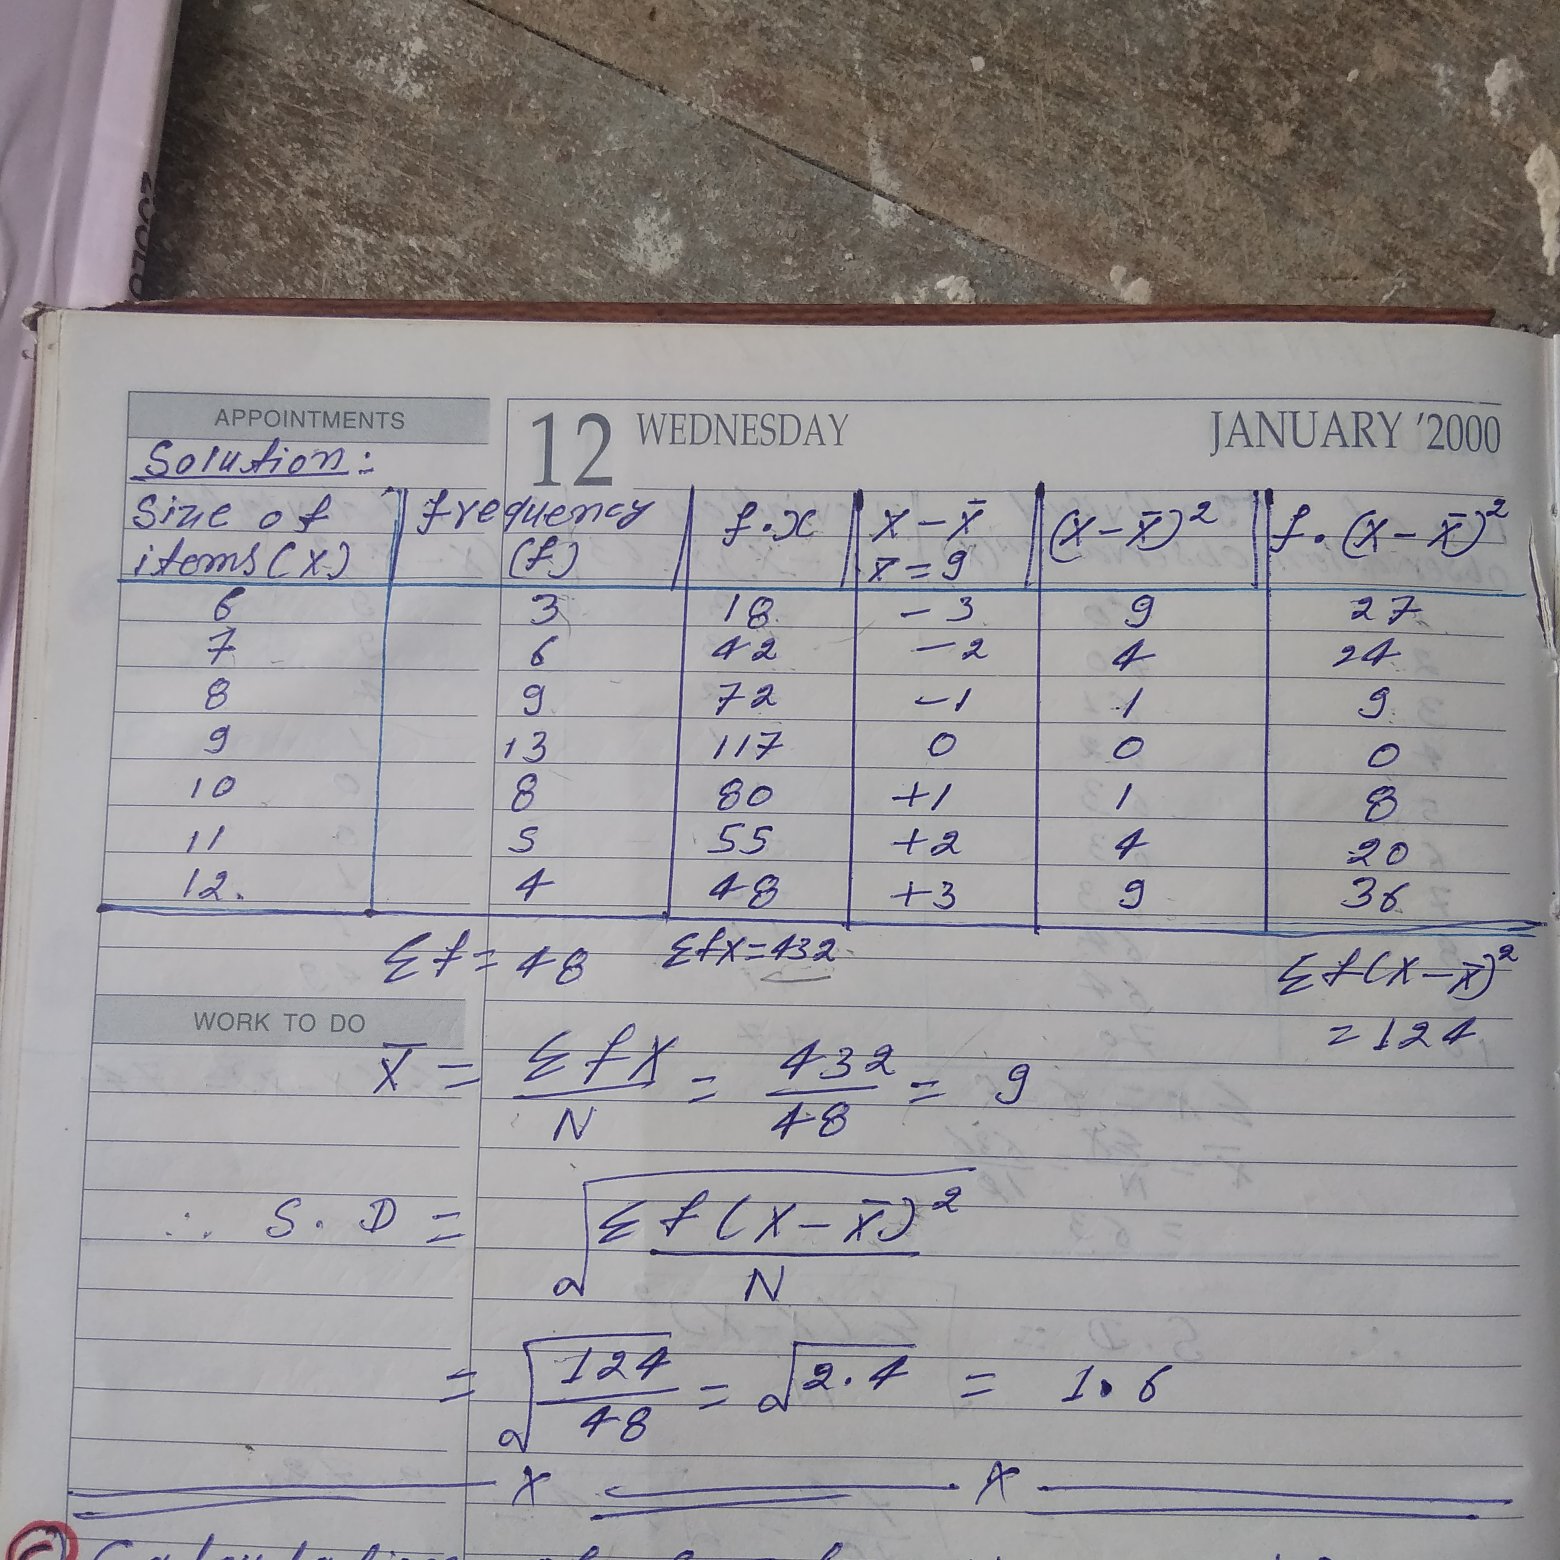 APPOINTMENTS
12 WEDNESDAY JANUARY '2000
Solution:
Size of items (X) | frequency (f) | f.x | X - x̄ x̄ = 9 | (X - x̄)² | f.(X - x̄)²
6 3 18 -3 9 27
7 6 42 -2 4 24
8 9 72 -1 1 9
9 13 117 0 0 0
10 8 80 +1 1 8
11 5 55 +2 4 20
12. 4 48 +3 9 36
Σf = 48 Σfx = 432 Σf(X - x̄)² = 124
WORK TO DO
X̄ = ΣfX / N = 432 / 48 = 9
∴ S.D = √(Σf(X - x̄)² / N)
= √(124 / 48) = √2.4 = 1.6
X X